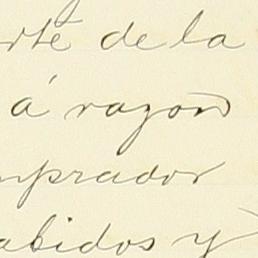 rte de la
á razon
mprador
abidos y